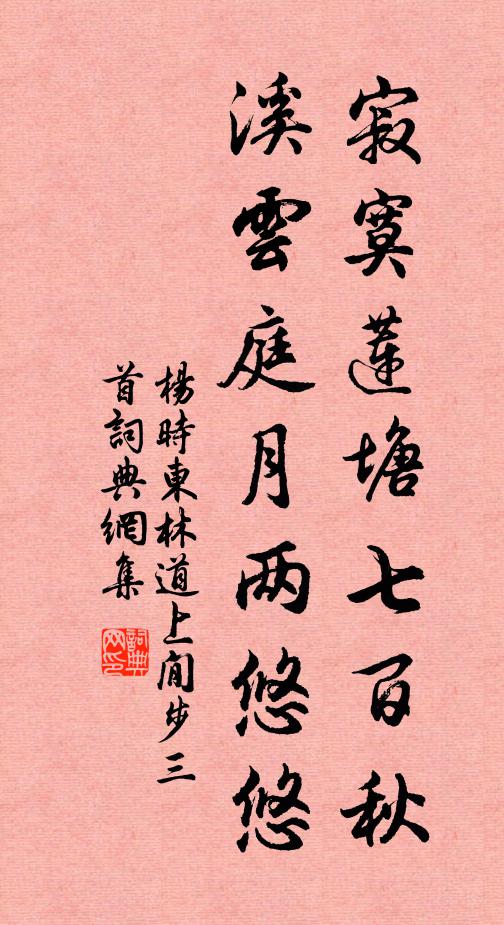 寂寞蓮塘七百秋
溪雲庭月两悠悠
楊時東林道上閒步三
首詞典網集
詞典网印